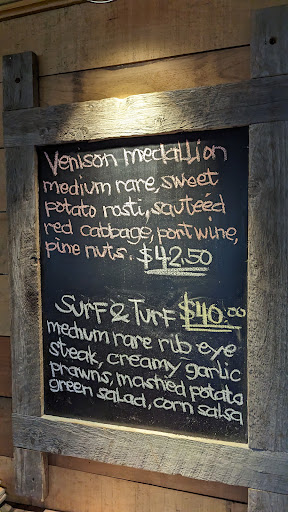 Venison medallion
medium rare, sweet
potato rosti, sauteéd
red cabbage, port wine,
pine nuts. $42.50
Surf & Turf $40.00
medium rare rib eye
steak, creamy garlic
prawns, mashed potato
green salad, corn salsa